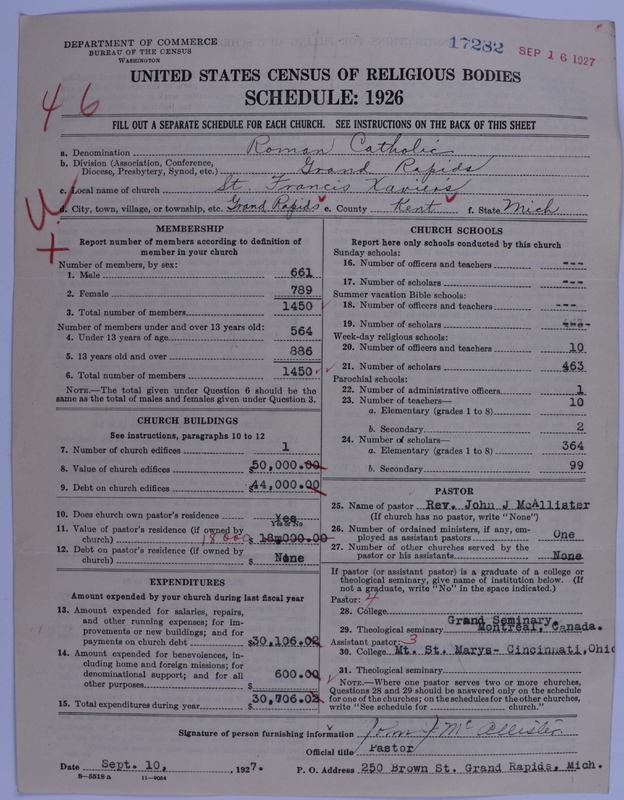 DEPARTMENT OF COMMERCE
BUREAU OF THE CENSUS
WASHINGTON
17282
SEP 16 1927
UNITED STATES CENSUS OF RELIGIOUS BODIES
SCHEDULE: 1926
46
FILL OUT A SEPARATE SCHEDULE FOR EACH CHURCH. SEE INSTRUCTIONS ON THE BACK OF THIS SHEET
a. Denomination Roman Catholic
b. Division (Association, Conference, Diocese, Presbytery, Synod, etc.) Grand Rapids
c. Local name of church St. Francis Xaviers
d. City, town, village, or township, etc. Grand Rapids e. County Kent f. State Mich
MEMBERSHIP
Report number of members according to definition of
member in your church
Number of members, by sex:
1. Male 661
2. Female 789
3. Total number of members 1450
Number of members under and over 13 years old:
4. Under 13 years of age 564
5. 13 years old and over 886
6. Total number of members 1450
NOTE.—The total given under Question 6 should be
same as the total of males and females given under Question 3.
CHURCH BUILDINGS
See instructions, paragraphs 10 to 12
7. Number of church edifices 1
8. Value of church edifices $50,000.00
9. Debt on church edifices $44,000.00
10. Does church own pastor's residence Yes
Yes or No
11. Value of pastor's residence (if owned by
church) 18000 $ 18,000.00
12. Debt on pastor's residence (if owned by
church) $ None
EXPENDITURES
Amount expended by your church during last fiscal year
13. Amount expended for salaries, repairs,
and other running expenses; for im-
provements or new buildings; and for
payments on church debt $30,106.02
14. Amount expended for benevolences, in-
cluding home and foreign missions; for
denominational support; and for all
other purposes $ 600.00
15. Total expenditures during year $30,706.02
CHURCH SCHOOLS
Report here only schools conducted by this church
Sunday schools:
16. Number of officers and teachers ---
17. Number of scholars ---
Summer vacation Bible schools:
18. Number of officers and teachers ---
19. Number of scholars
Week-day religious schools:
20. Number of officers and teachers 10
21. Number of scholars 463
Parochial schools:
22. Number of administrative officers 1
23. Number of teachers— 10
a. Elementary (grades 1 to 8)
b. Secondary 2
24. Number of scholars—
a. Elementary (grades 1 to 8) 364
b. Secondary 99
PASTOR
25. Name of pastor Rev. John J McAllister
(If church has no pastor, write "None")
26. Number of ordained ministers, if any, em-
ployed as assistant pastors One
27. Number of other churches served by the
pastor or his assistants None
If pastor (or assistant pastor) is a graduate of a college or
theological seminary, give name of institution below. (If
not a graduate, write "No" in the space indicated.)
Pastor: 4
28. College
29. Theological seminary Grand Seminary, Montreal, Canada.
Assistant pastor: 3
30. College Mt. St. Marys- Cincinnati, Ohio
31. Theological seminary
NOTE.—Where one pastor serves two or more churches,
Questions 28 and 29 should be answered only on the schedule
for one of the churches; on the schedules for the other churches,
write "See schedule for church."
Signature of person furnishing information John J McAllister
Official title Pastor
Date Sept. 10, , 1927. P. O. Address 250 Brown St. Grand Rapids, Mich.
8-5518a 11-9054